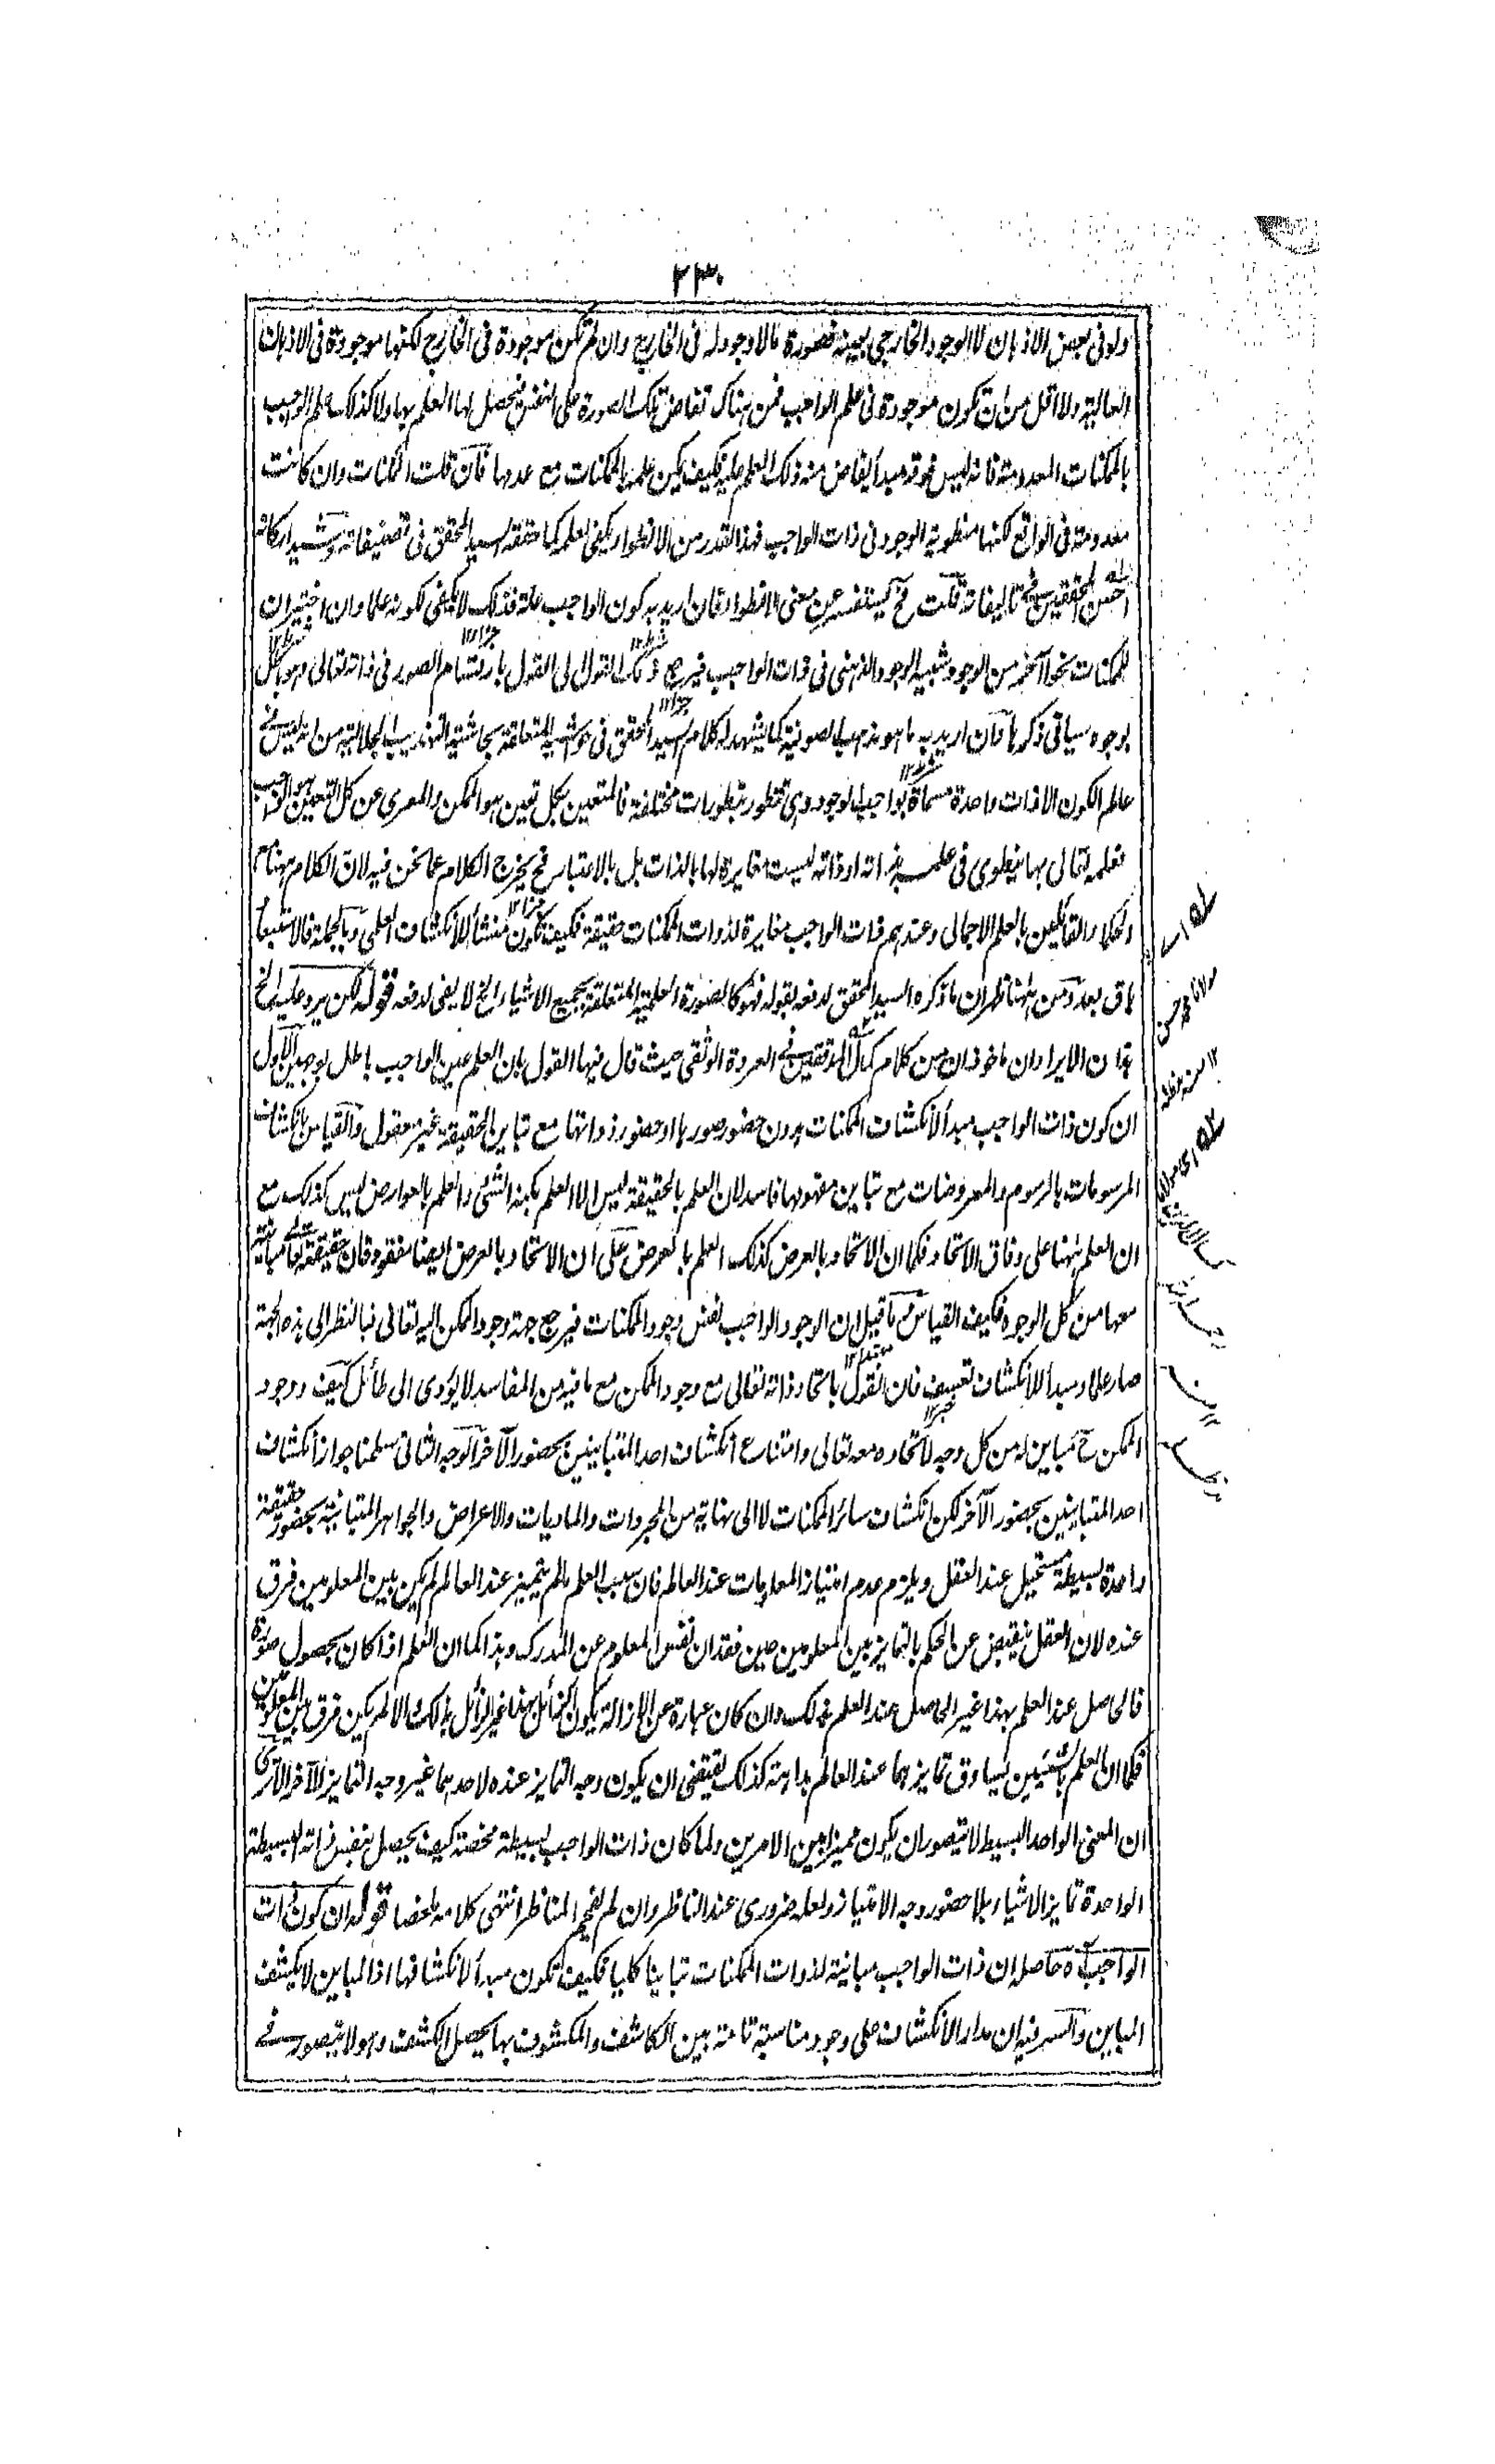 ٢٣٠
ولو فى بعض الاذهان لا الوجود الخارجى بعينه فصورة مالا وجود له فى الخارج وان لم تكن موجودة فى الخارج لكنها موجودة فى الاذهان
العالية ولا اقل من ان تكون موجودة فى علم الواجب فمن هناك تفاض تلك الصورة على النفس فيحصل لها العلم بها ولا كذلك علم الواجب
بالممكنات المعدومة فانه ليس فوقه مبدأ يفاض منه ذلك العلم عليه فكيف يمكن علمه بالممكنات مع عدمها فان قلت الممكنات وان كانت
معدومة فى الواقع لكنها منطوية الوجود فى ذات الواجب فهذا القدر من الانطواء يكفى لعلمه كما حققه السيد المحقق فى تصنيفاته وشيد اركانه
احسن المحققين فى تاليفاته قلت ح يستفسر عن معنى الانطواء فان اريد به كون الواجب علة فذلك لا يكفى لكونه علما وان اختير ان
للممكنات نحوا آخر من الوجود شبيه الوجود الذهنى فى ذات الواجب فيرجع ذلك القول الى القول بارتسام الصور فى ذاته تعالى وهو باطل
بوجوه سياتى ذكرها وان اريد به ما هو مذهب الصوفية كما يشهد له كلام السيد المحقق فى حواشيه المتعلقة بحاشية التهذيب الجلالية من انه ليس فى
عالم الكون الا ذات واحدة مسماة بواجب الوجود وهى تتطور بتطورات مختلفة فالمتعين بكل تعين هو الممكن والمعرى عن كل التعين هو الواجب
فعلمه تعالى بها ينطوى فى علمه بذاته اذ ذاته ليست مغايرة لها بالذات بل بالاعتبار فح يخرج الكلام عما نحن فيه لان الكلام ههنا مع
الحكماء القائلين بالعلم الاجمالى وعندهم ذات الواجب مغايرة لذوات الممكنات حقيقة فكيف تكون منشأ للانكشاف العلمى وبالجملة فالاستبعاد
باق بعد ومن ههنا ظهر ان ما ذكره السيد المحقق لدفعه بقوله فهو كالصورة العلمية المتعلقة بجميع الاشياء الخ لا يفى لدفعه قوله لكن يرد عليه الخ
هذان الايرادان ماخوذان من كلام كمال المدققين فى العروة الوثقى حيث قال فيها القول بان العلم عين الواجب باطل بوجهين الاول
ان كون ذات الواجب مبدأ لانكشاف الممكنات بدون حضور صورها او حضور ذواتها مع تباين الحقيقة غير معقول والقياس بانكشاف
المرسومات بالرسوم والمعروضات مع تباين مفهومها فاسد لان العلم بالحقيقة ليس الا العلم بكنه الشئ والعلم بالعوارض ليس كذلك مع
ان العلم ههنا على وفاق الاتحاد فكما ان الاتحاد بالعرض كذلك العلم بالعرض على ان الاتحاد بالعرض ايضا مفقود فان حقيقته تعالى مباينة
معها من كل الوجوه فكيف القياس وما قيل ان الوجود الواجب نفس وجود الممكنات فيرجع جهة وجود الممكن اليه تعالى فبالنظر الى هذه الجهة
صار علما ومبدأ للانكشاف تعسف فان القول باتحاد ذاته تعالى مع وجود الممكن مع ما فيه من المفاسد لا يؤدى الى طائل كيف ووجود
الممكن ح مباين له من كل وجه لاتحاده معه تعالى وامتناع انكشاف احد المتباينين بحضور الآخر الوجه الثانى سلمنا جواز انكشاف
احد المتباينين بحضور الآخر لكن انكشاف سائر الممكنات لا الى نهاية من المجردات والماديات والاعراض والجواهر المتباينة بحضور حقيقة
واحدة بسيطة مستحيل عند العقل ويلزم عدم امتياز المعلومات عند العالم فان سبب العلم ما لم يتميز عند العالم لم يكن بين المعلومين فرق
عنده لان العقل ينقبض عن الحكم بالتمايز بين المعلومين حين فقدان نفس المعلوم عن المدرك وهذا كما ان العلم اذا كان بحصول صورة
فالحاصل عند العلم بهذا غير الحاصل عند العلم بذلك وان كان عبارة عن الازالة يكون الزائل بهذا غير الزائل بذلك والا لم يكن فرق بين المعلومين
فكما ان العلم بالشيئين يساوق تمايزهما عند العالم بداهة كذلك يقتضى ان يكون وجه التمايز عنده لاحدهما غير وجه التمايز للآخر الا ترى
ان المعنى الواحد البسيط لا يتصور ان يكون مميزا بين الامرين ولما كان ذات الواجب بسيطة محضة كيف يحصل بنفس ذاته البسيطة
الواحدة تمايز الاشياء بلا حضور وجه الامتياز ولعله ضرورى عند الناظر وان لم يفحم المناظر انتهى كلامه ملخصا قوله ان كون ذات
الواجب آه حاصله ان ذات الواجب مباينة لذوات الممكنات تباينا كليا فكيف تكون مبدأ لانكشافها اذ المباين لا يكشف
المباين والسر فيه ان مدار الانكشاف على وجود مناسبة تامة بين الكاشف والمكشوف بها يحصل الكشف وهو لا يتصور فى
مولانا محمد حسن